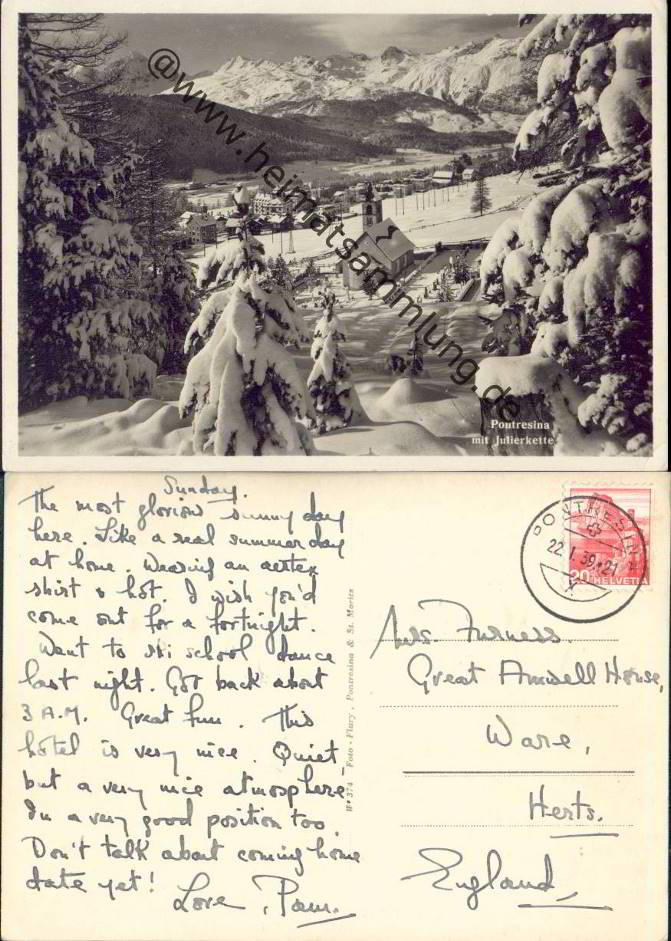 @www.heimatsammlung.de
Pontresina
mit Julierkette
Sunday.
The most glorious sunny day
here. Like a real summer day
at home. Wearing an aertex
shirt & hot. I wish you'd
come out for a fortnight.
Want to ski school dance
last night. Got back about
3 A.M. Great fun. This
hotel is very nice. Quiet
but a very nice atmosphere.
In a very good position too.
Don't talk about coming home
date yet!
Love, Pam.
Nº 374 - Foto - Flury, Pontresina & St. Moritz
PONTRESINA
22.I.39.-21
20 HELVETIA
Mrs. Furness.
Great Amwell House,
Ware,
Herts.
England,